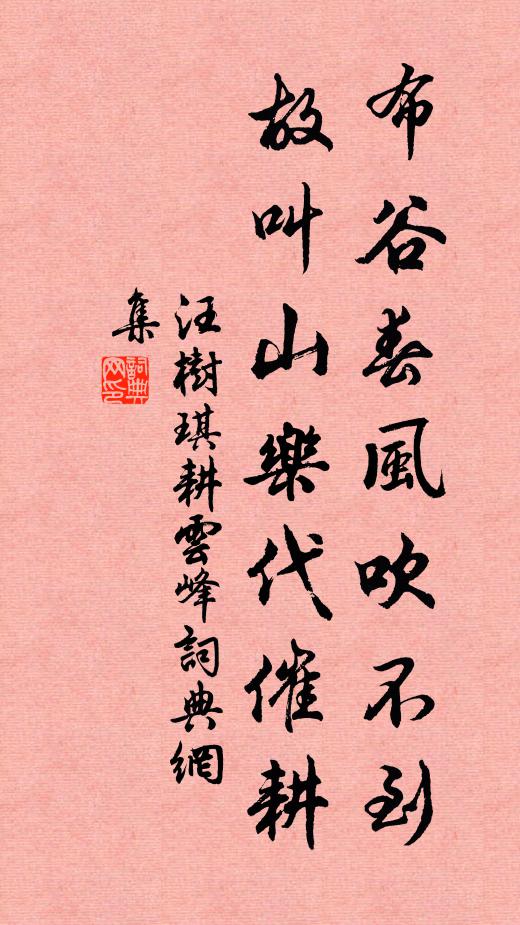 布谷春風吹不到
故叫山樂代催耕
汪樹琪耕雲峰詞典網
集
詞典網印